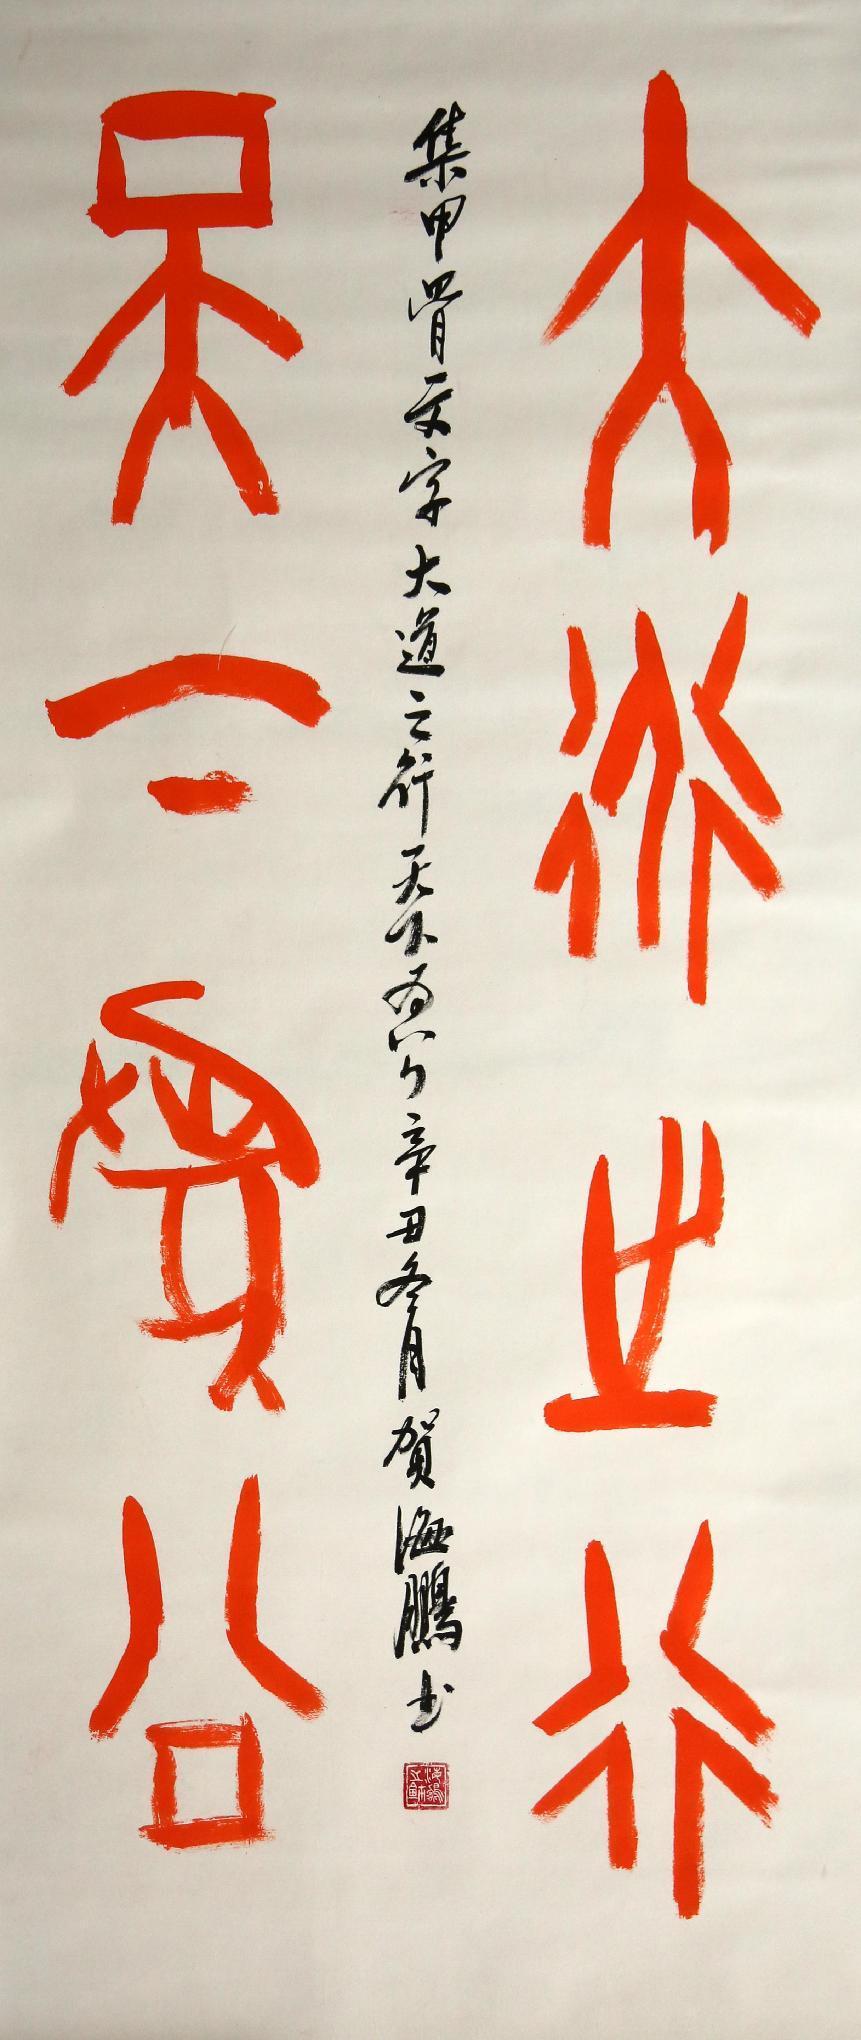 大道之行
集甲骨文字大道之行天下為公 辛丑冬月賀海鵬书
天下為公